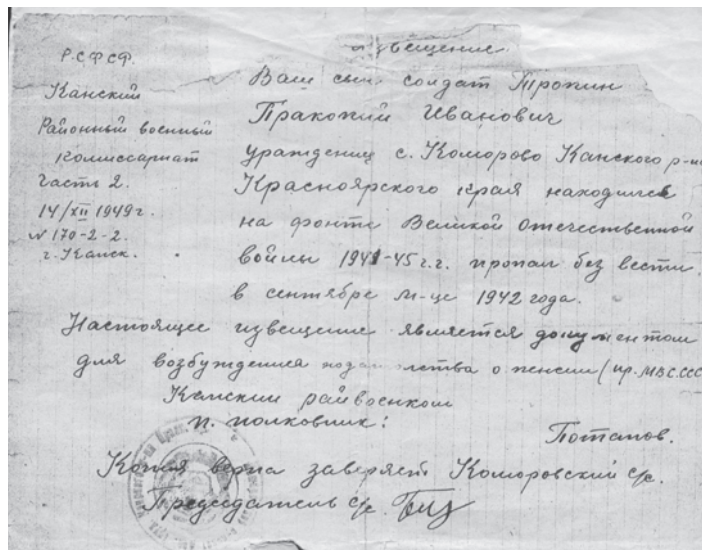 извещение
Р.С.Ф.С.Р.
Канский
Районный военный
комиссариат
Часть 2.
14/XII 1949 г.
N 170-2-2.
г. Канск.
Ваш сын солдат Тропин
Пракопий Иванович
ураждениц с. Коморово Канского р-на
Красноярского края находился
на фронте Великой Отечественной
войны 1941-45 г.г. пропал без вести
в сентябре м-це 1942 года.
Настоящее извещение является документом
для возбуждения о пенсии (пр. МВС.ССС
Канский райвоенком
п. полковник:
Потапов.
Копия верна заверяет Коморовский с/с.
Председатель с/с.